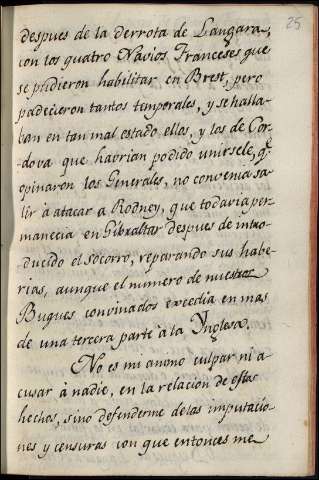 25
despues de la derrota de Langara,
con los quatro Navios Franceses que
se pudieron habilitar en Brest, pero
padecieron tantos temporales, y se halla-
ban en tan mal estado ellos, y los de Cor-
dova que havrian podido unirsele, q.e
opinaron los Generales, no convenia sa-
lir à atacar a Rodney, que todavia per-
manecia en Gibraltar despues de intro-
ducido el socorro, reparando sus habe-
rias, aunque el numero de nuestros
Buques convinados excedia en mas
de una tercera parte à la Ynglesa.
No es mi animo culpar ni a-
cusar à nadie, en la relacion de estos
hechos, sino defenderme de las imputacio-
nes y censuras con que entonces me